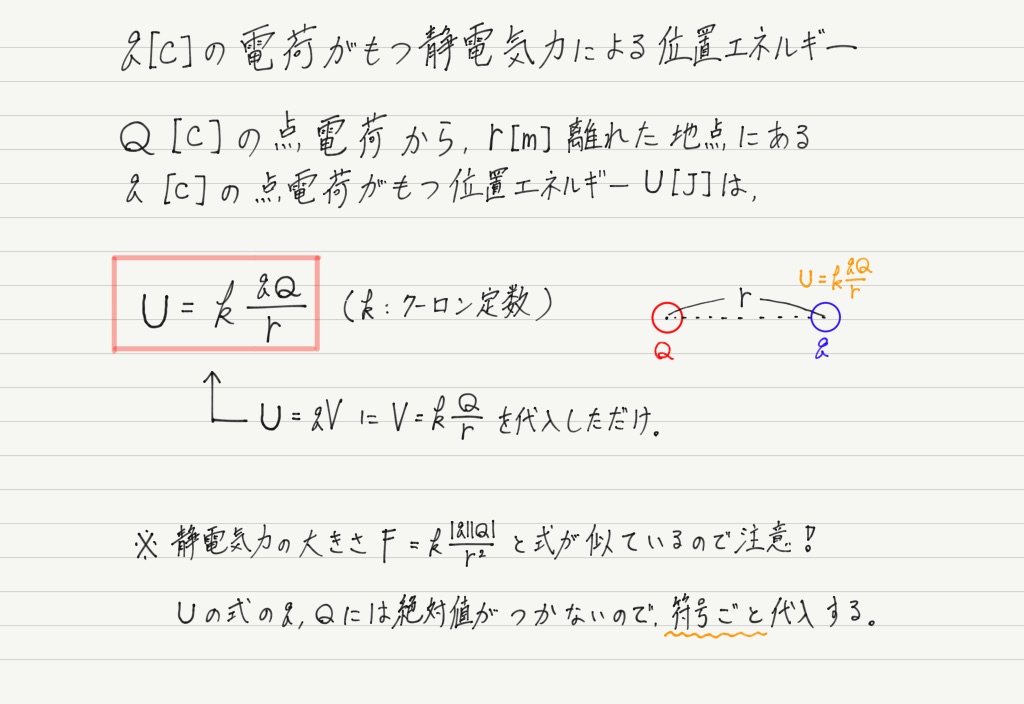 q[C]の電荷がもつ静電気力による位置エネルギー
Q [C]の点電荷から, r[m]離れた地点にある
q [C]の点電荷がもつ位置エネルギー U[J]は,
U = k qQ/r (k:クーロン定数)
U = k qQ/r
r
Q
q
U = qV に V = k Q/r を代入しただけ。
※ 静電気力の大きさ F = k |q||Q|/r² と式が似ているので注意!
Uの式の q, Qには絶対値がつかないので, 符号ごと代入する。